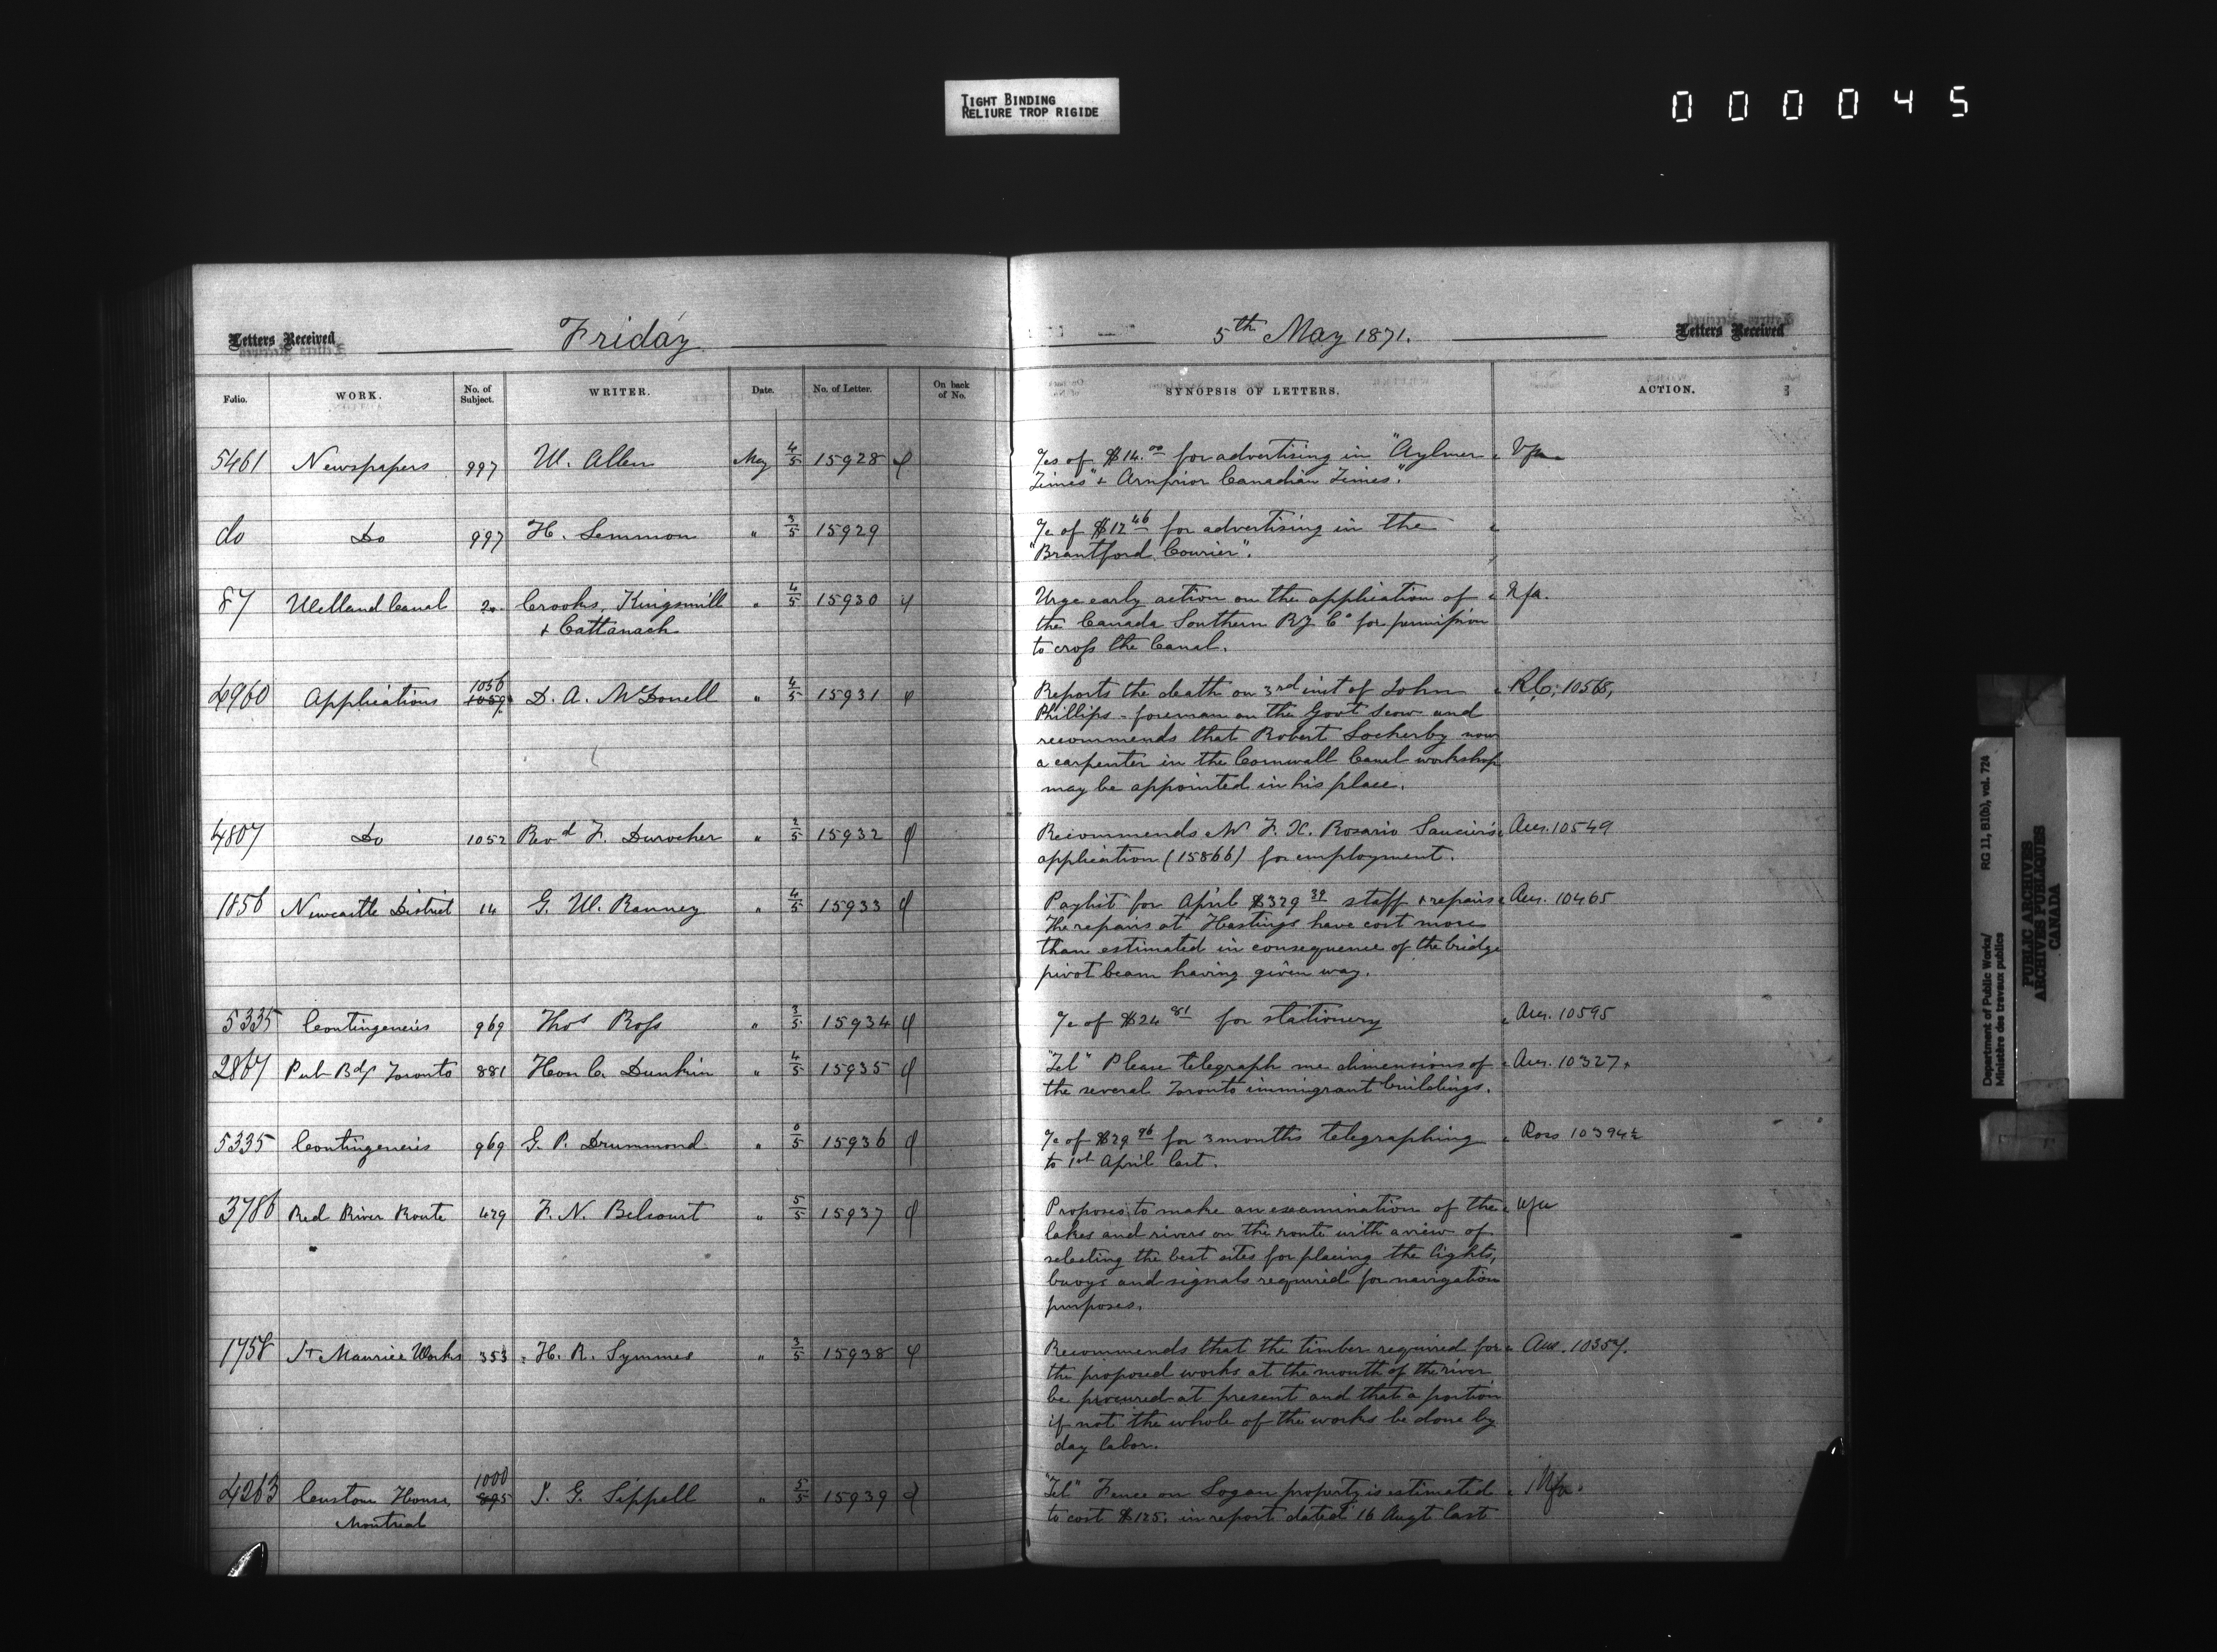 TIGHT BINDING
RELIURE TROP RIGIDE
000045
Letters Received Friday 5th May 1871. Letters Received
Folio. WORK. No. of Subject. WRITER. Date. No. of Letter. On back of No. SYNOPSIS OF LETTERS. ACTION.
5461 Newspapers 997 W. Allen May 4/5 15928 of $14.00 for advertising in "Aylmer
Times" & Arnprior Canadian Times".
do Do 997 H. Lemmon " 3/5 15929 of $12 46 for advertising in the
"Brantford Courier".
87 Welland Canal 20 Crooks, Kingsmill " 4/5 15930 Urge early action on the application of Nfa.
& Cattanach the Canada Southern Ry Co for permission
to cross the Canal.
4960 Applications 1056 D. A. McDonell " 4/5 15931 Reports the death on 3rd inst of John 10568,
Phillips - foreman on the Govt Scow and
recommends that Robert Locherby now
a carpenter in the Cornwall Canal workshop
may be appointed in his place.
4807 Do 1052 Revd F. Durocher " 2/5 15932 Recommends Mr F. X. Rosario Saucier's Ans. 10549
application (15866) for employment.
1856 Newcastle District 14 G. W. Ranney " 4/5 15933 Paylist for April $329 39 staff & repairs Ans. 10465
The repairs at Hastings have cost more
than estimated in consequence of the bridge
pivot beam having given way.
5335 Contingencies 969 Thos Ross " 3/5 15934 of $24 81 for stationery Ans. 10595
2867 Pub Bdgs Toronto 881 Hon C. Dunkin " 4/5 15935 "Tel" Please telegraph me dimensions of Ans. 10327.
the several Toronto immigrant buildings.
5335 Contingencies 969 G. P. Drummond " 0/5 15936 of $29 96 for 3 months telegraphing Ross 10394½
to 1st April last.
3786 Red River Route 429 F. N. Belcourt " 5/5 15937 Proposes to make an examination of the nfa
lakes and rivers on the route with a view of
selecting the best sites for placing the lights,
buoys and signals required for navigation
purposes.
1758 St Maurice Works 353 H. R. Symmes " 3/5 15938 Recommends that the timber required for Ans. 10357.
the proposed works at the mouth of the river
be procured at present and that a portion
if not the whole of the works be done by
day labor.
4263 Custom House, 1000 J. G. Sippell " 5/5 15939 "Tel" Fence on Logan property is estimated Nfa.
Montreal 895 to cost $125. in report dated 16 Augt last
Department of Public Works/ RG 11, B1(b), vol. 724
Ministère des travaux publics
PUBLIC ARCHIVES
ARCHIVES PUBLIQUES
CANADA